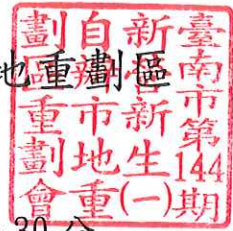 地重劃區
臺南市第144期
新營新生(一)
自辦市地重
劃區重劃會